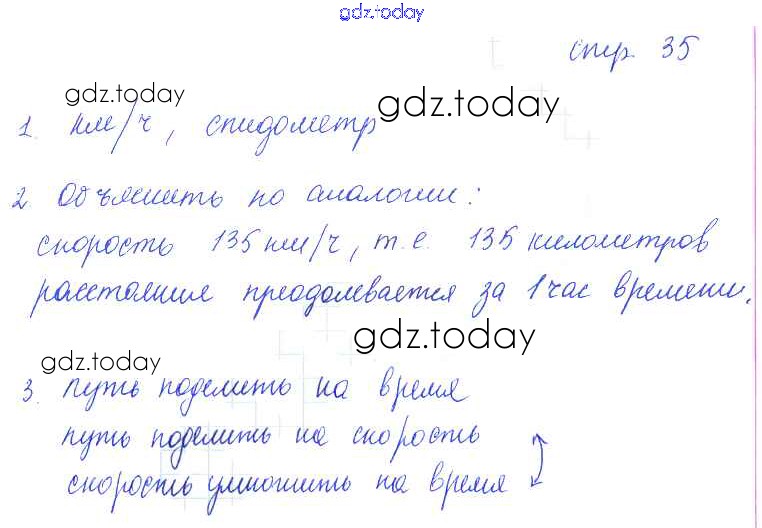 gdz.today
стр. 35
gdz.today
gdz.today
1. км/ч, спидометр
2 Объяснить по аналогии:
скорость 135 км/ч, т.е. 135 километров
расстояния преодолевается за 1 час времени.
gdz.today
gdz.today
3. путь поделить на время
путь поделить на скорость
скорость умножить на время